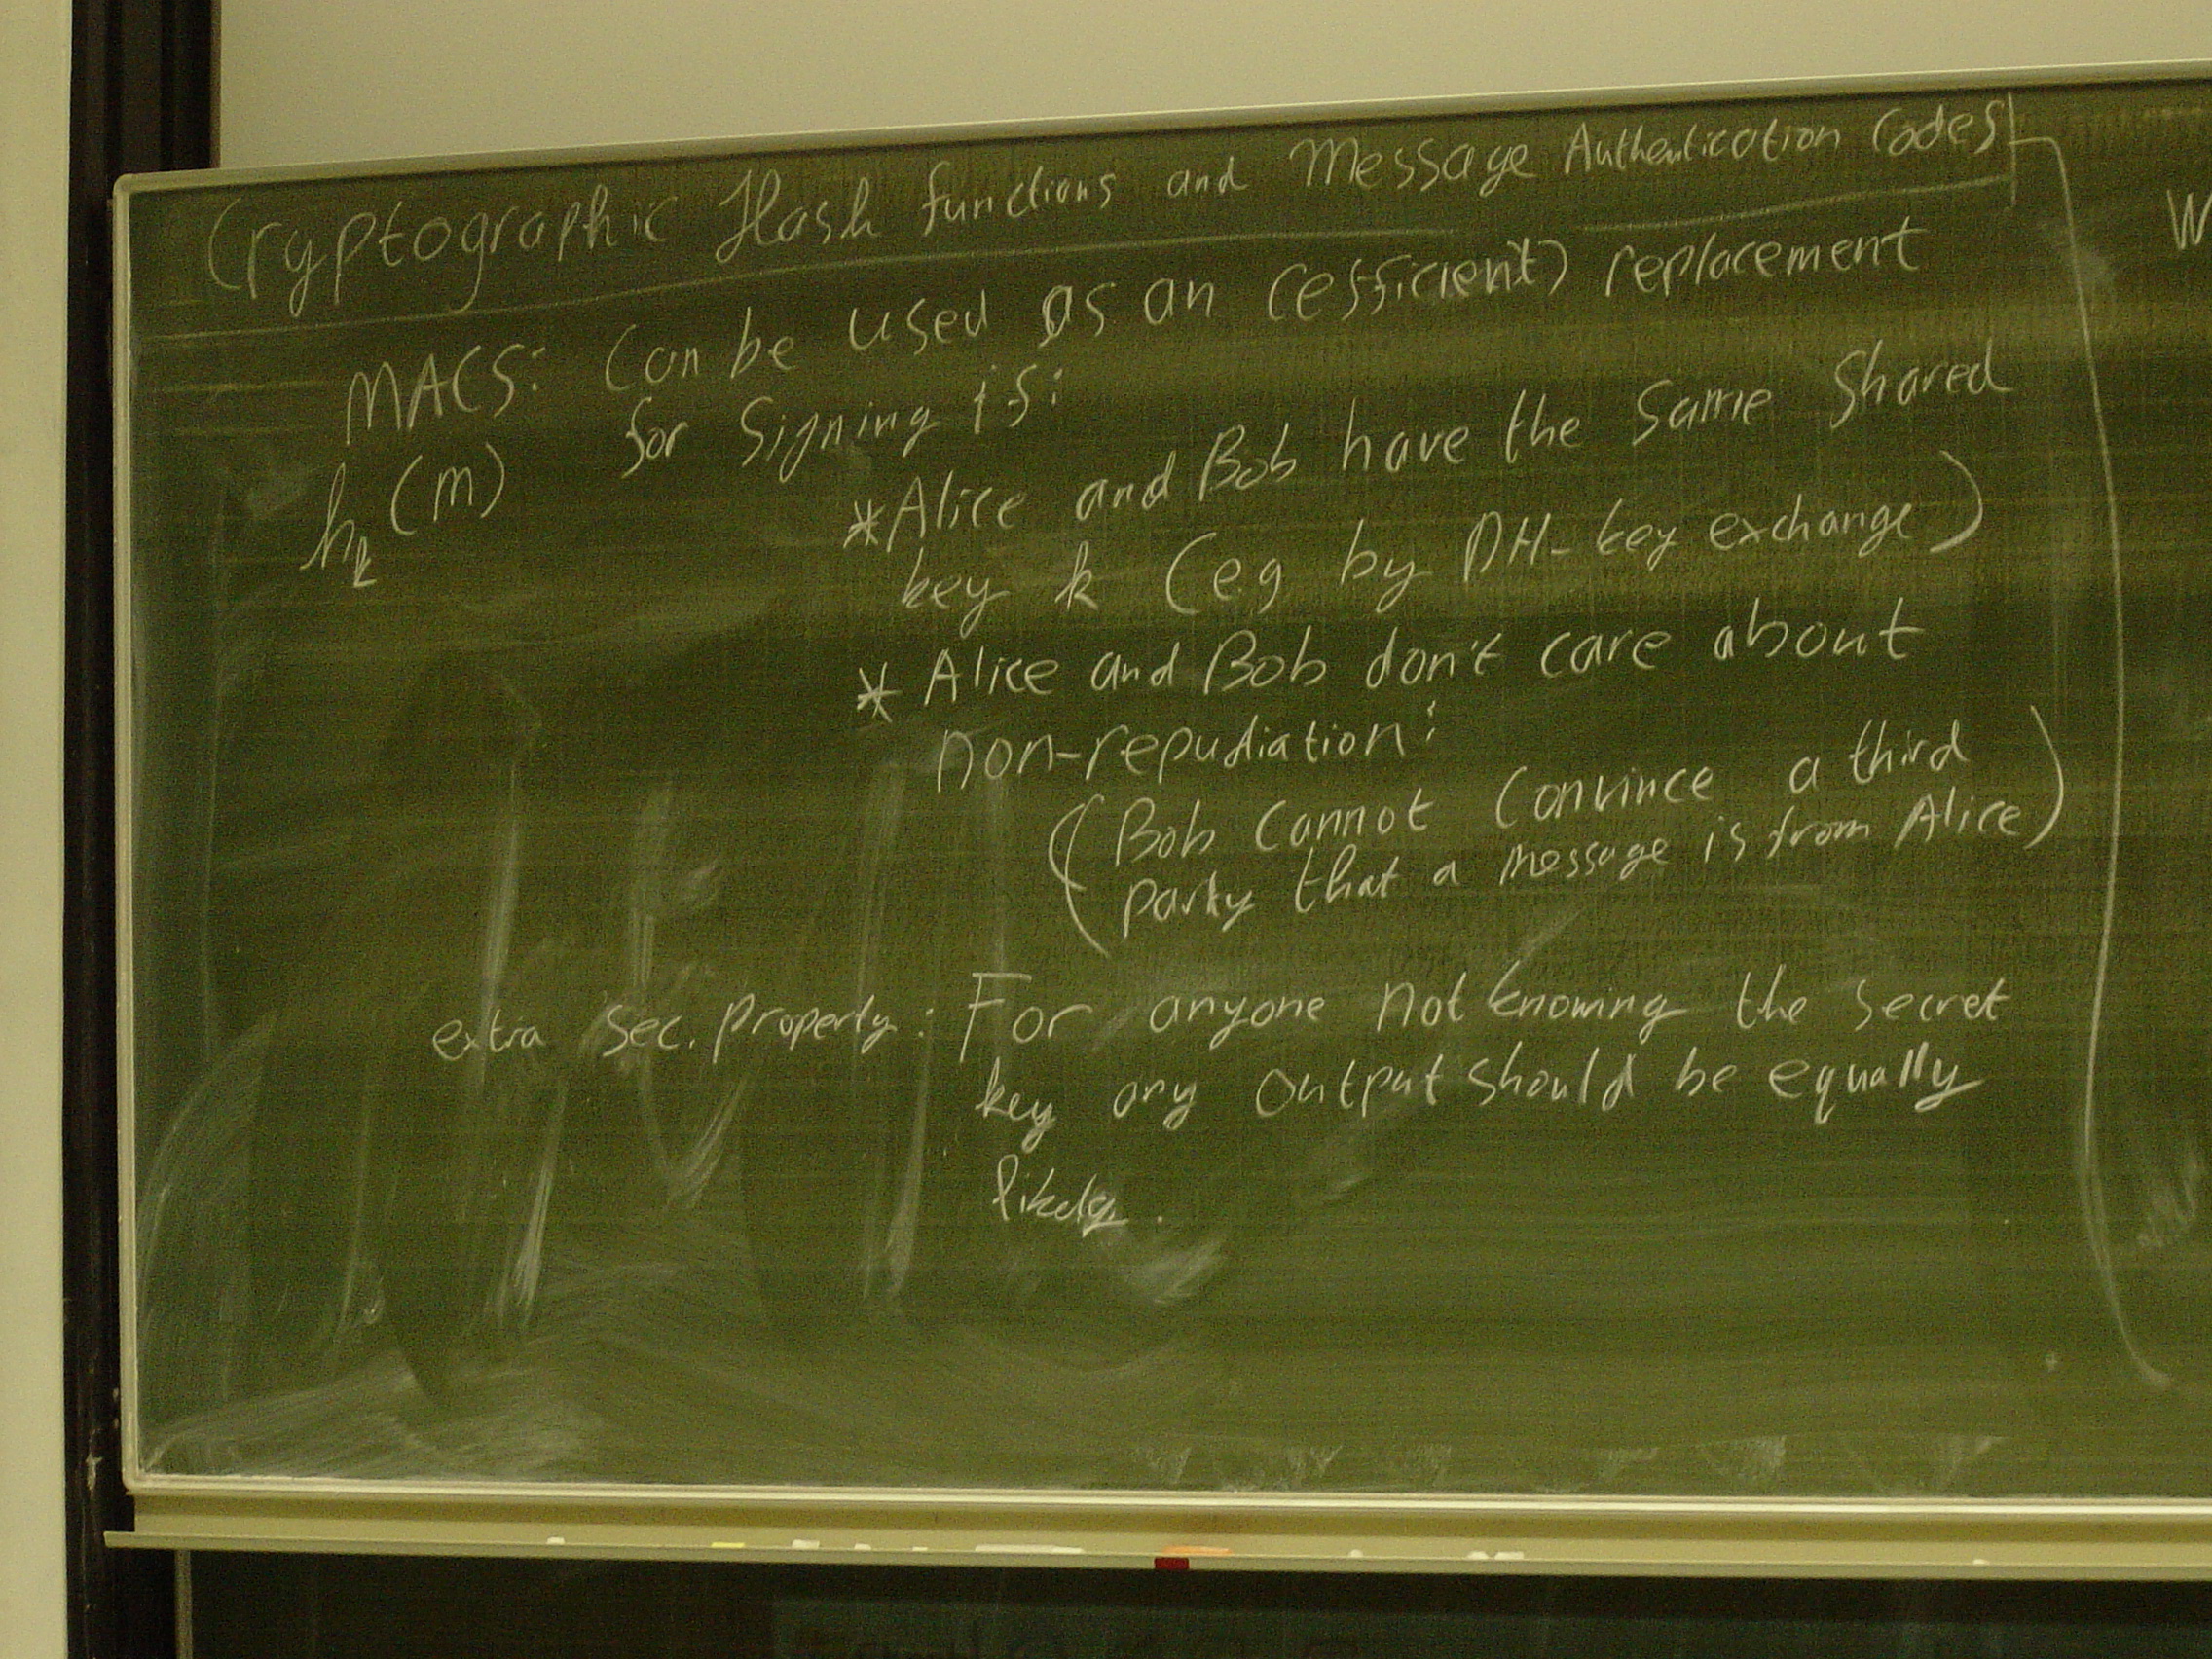 Cryptographic Hash functions and Message Authentication Codes
MACS: Can be used as an (efficient) replacement
h_k(m) for Signing if:
* Alice and Bob have the same shared
key k (eg by DH-key exchange)
* Alice and Bob don't care about
non-repudiation:
(Bob cannot convince a third
party that a message is from Alice)
extra sec. property: For anyone not knowing the secret
key any output should be equally
likely.
W